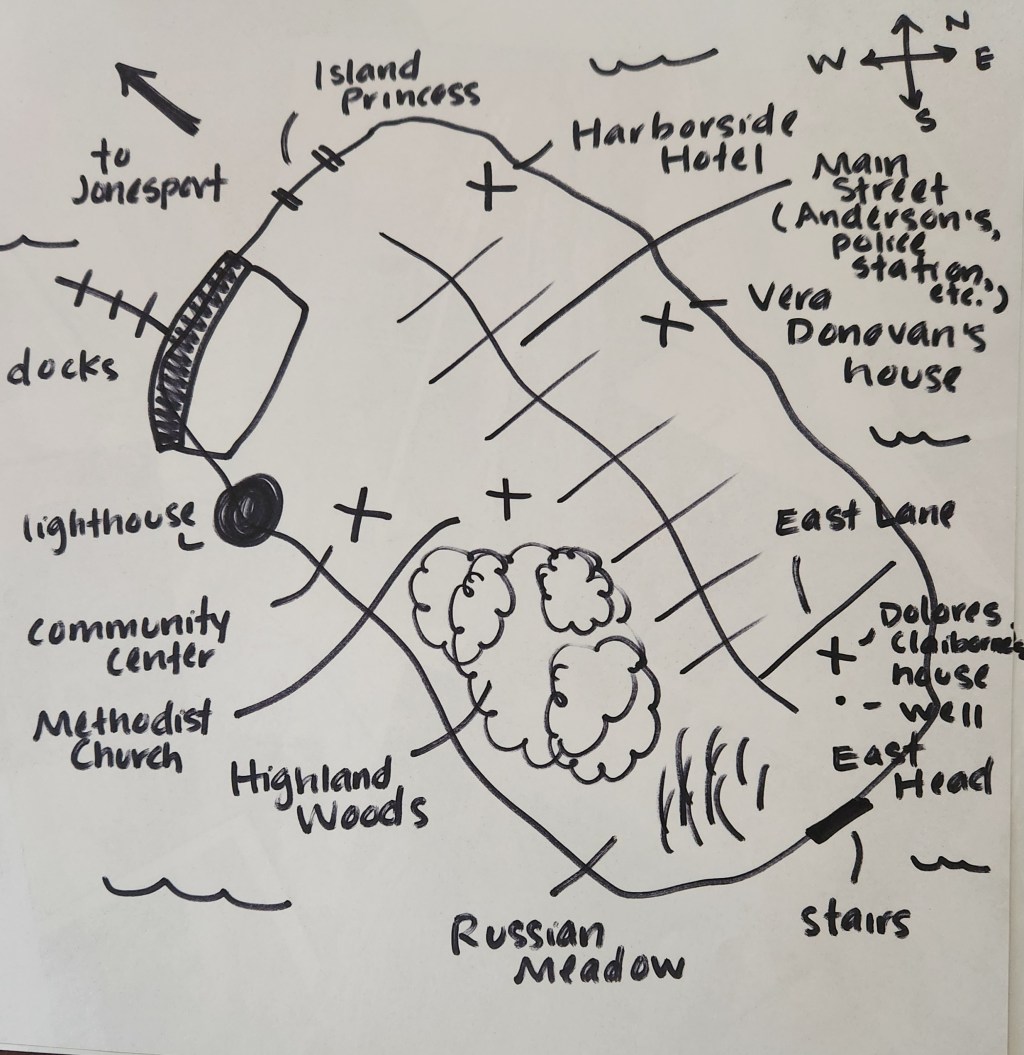 N
W E
S
Island
Princess
to
Jonesport
Harborside
Hotel
Main
Street
(Anderson's,
police
station,
etc.)
Vera
Donovan's
house
docks
lighthouse
East Lane
community
center
Dolores
Claiborne's
house
well
Methodist
Church
East
Head
Highland
Woods
stairs
Russian
Meadow